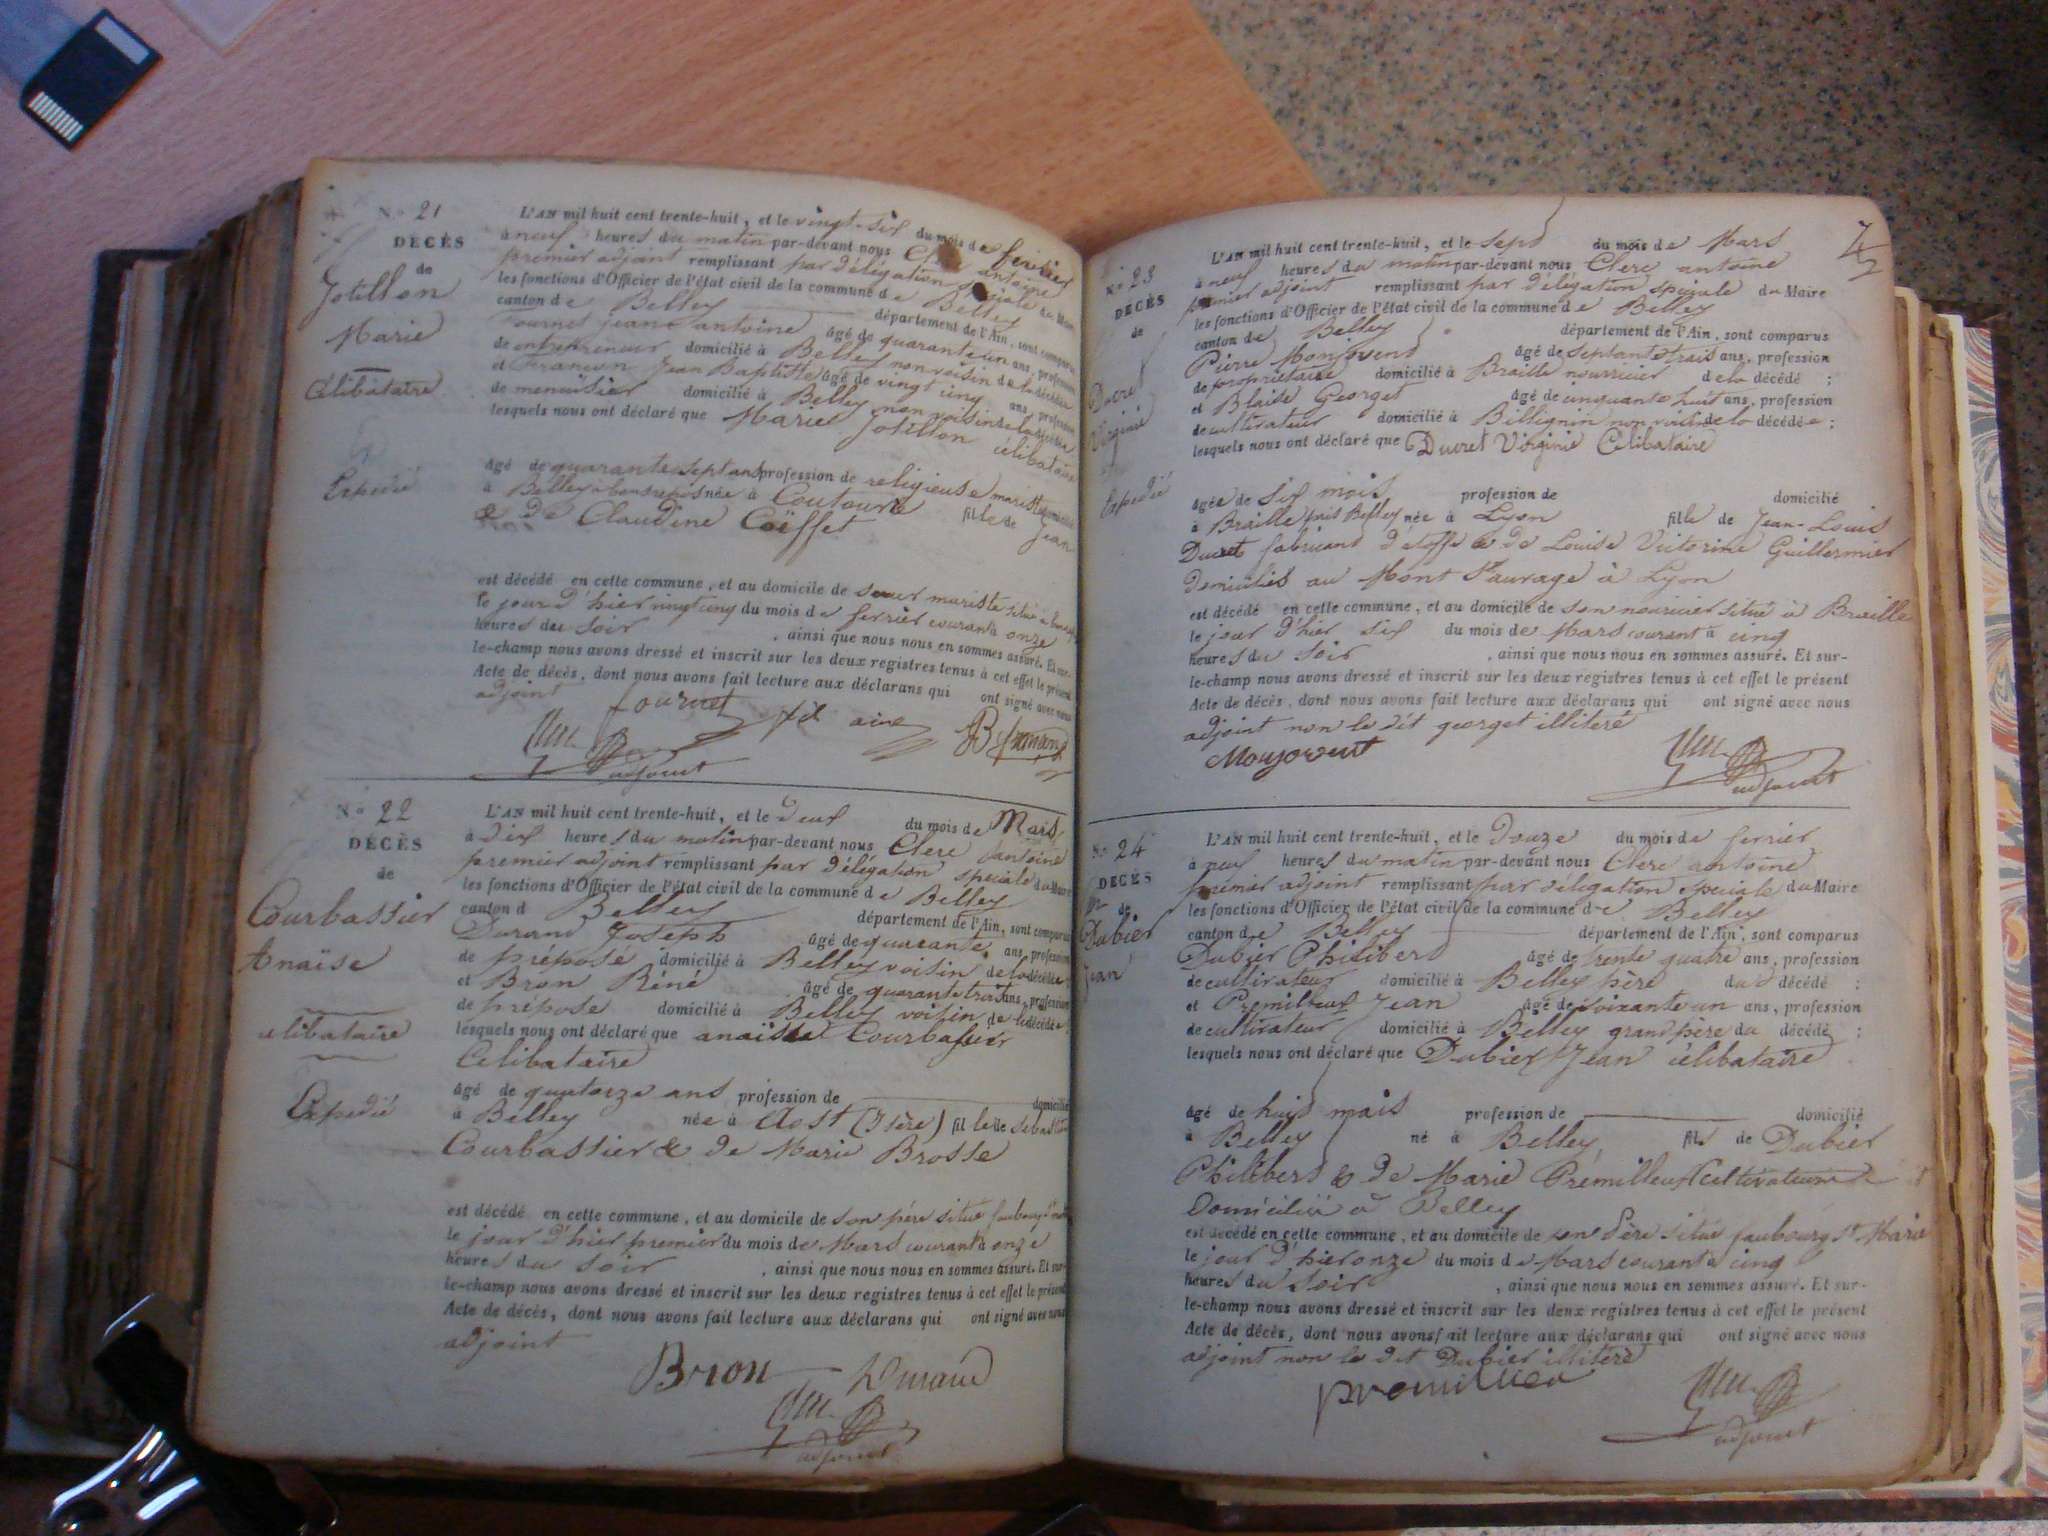 N.o 21
DÉCÈS
de
Jotillon
Marie
Célibataire
Expedié
L'AN mil huit cent trente-huit, et le vingt-six du mois de fevrier
à neuf heures du matin par-devant nous Clerc antoine
premier adjoint remplissant par délégation spéciale du Maire
les fonctions d'Officier de l'état civil de la commune de Belley
canton de Belley département de l'Ain, sont comparus
Fournet jean antoine âgé de quarante un ans, profession
de entrepreneur domicilié à Belley non voisin de la décédée
et Francon Jean Baptiste âgé de vingt cinq ans, profession
de menuisier domicilié à Belley non voisin de la décédée
lesquels nous ont déclaré que Marie Jotillon
célibataire
âgé de quarante sept ans profession de religieuse mariste domicilié
à Belley à bon repos née à Coutouvre fille de Jean
& de Claudine Coïffet
est décédé en cette commune, et au domicile de soeur mariste situé à
le jour d'hier vingt cinq du mois de fevrier courant à onze
heures du soir , ainsi que nous nous en sommes assuré. Et sur-
le-champ nous avons dressé et inscrit sur les deux registres tenus à cet effet le présent
Acte de décès, dont nous avons fait lecture aux déclarans qui ont signé avec nous
adjoint
fournet fil aine
adjoint
N.o 22
DÉCÈS
de
Courbassier
Anaïse
célibataire
Expedié
L'AN mil huit cent trente-huit, et le deux du mois de Mars
à dix heures du matin par-devant nous Clerc antoine
premier adjoint remplissant par délégation speciale du Maire
les fonctions d'Officier de l'état civil de la commune de Belley
canton d Belley département de l'Ain, sont comparus
Durand Joseph âgé de quarante ans, profession
de préposé domicilié à Belley voisin de la décédée
et Bron Réné âgé de quarante trois ans, profession
de préposé domicilié à Belley voisin de la décédée
lesquels nous ont déclaré que anaïse Courbassier
Celibataire
âgé de quatorze ans profession de domicilié
à Belley née à Aost (Isère) fille de
Courbassier & de Marie Brosse
est décédé en cette commune, et au domicile de son père situé faubourg
le jour d'hier premier du mois de Mars courant à onze
heures du soir , ainsi que nous nous en sommes assuré. Et sur-
le-champ nous avons dressé et inscrit sur les deux registres tenus à cet effet le présent
Acte de décès, dont nous avons fait lecture aux déclarans qui ont signé avec nous
adjoint
Bron Durand
adjoint
N.o 23
DÉCÈS
de
Ducret
Virginie
Expedié
L'AN mil huit cent trente-huit, et le sept du mois de Mars
à neuf heures du matin par-devant nous Clerc antoine
premier adjoint remplissant par délégation spéciale du Maire
les fonctions d'Officier de l'état civil de la commune de Belley
canton de Belley département de l'Ain, sont comparus
Pierre Monjovent âgé de septante trois ans, profession
de propriétaire domicilié à Braille nourricier de la décédé ;
et Blaise Georget âgé de cinquante huit ans, profession
de cultivateur domicilié à Billignin non voisin de la décédée ;
lesquels nous ont déclaré que Ducret Virginie Célibataire
âgée de six mois profession de domicilié
à Braille près Belley née à Lyon fille de Jean-Louis
Ducret fabricant d'étoffe & de Louise Victorine Guillermier
Domiciliés au Mont Sauvage à Lyon
est décédé en cette commune, et au domicile de son nourricier situé à Braille
le jour d'hier six du mois de Mars courant à cinq
heures du soir , ainsi que nous nous en sommes assuré. Et sur-
le-champ nous avons dressé et inscrit sur les deux registres tenus à cet effet le présent
Acte de décès, dont nous avons fait lecture aux déclarans qui ont signé avec nous
adjoint non le dit georget illiteré
Monjovent
adjoint
N.o 24
DÉCÈS
de
Dubier
Jean
L'AN mil huit cent trente-huit, et le Douze du mois de fevrier
à neuf heures du matin par-devant nous Clerc antoine
premier adjoint remplissant par délégation speciale du Maire
les fonctions d'Officier de l'état civil de la commune de Belley
canton de Belley département de l'Ain, sont comparus
Dubier Philibert âgé de trente quatre ans, profession
de cultivateur domicilié à Belley père du décédé ;
et Premilleux Jean âgé de soixante un ans, profession
de cultivateur domicilié à Belley grand père du décédé ;
lesquels nous ont déclaré que Dubier Jean célibataire
âgé de huit mois profession de domicilié
à Belley né à Belley fils de Dubier
Philibert & de Marie Prémilleux Cultivateurs
Domicilié à Belley
est décédé en cette commune, et au domicile de son Père situé faubourg St Marie
le jour d'hier onze du mois de Mars courant à cinq
heures du soir , ainsi que nous nous en sommes assuré. Et sur-
le-champ nous avons dressé et inscrit sur les deux registres tenus à cet effet le présent
Acte de décès, dont nous avons fait lecture aux déclarans qui ont signé avec nous
adjoint non le dit Dubier illiteré
premilleu
adjoint